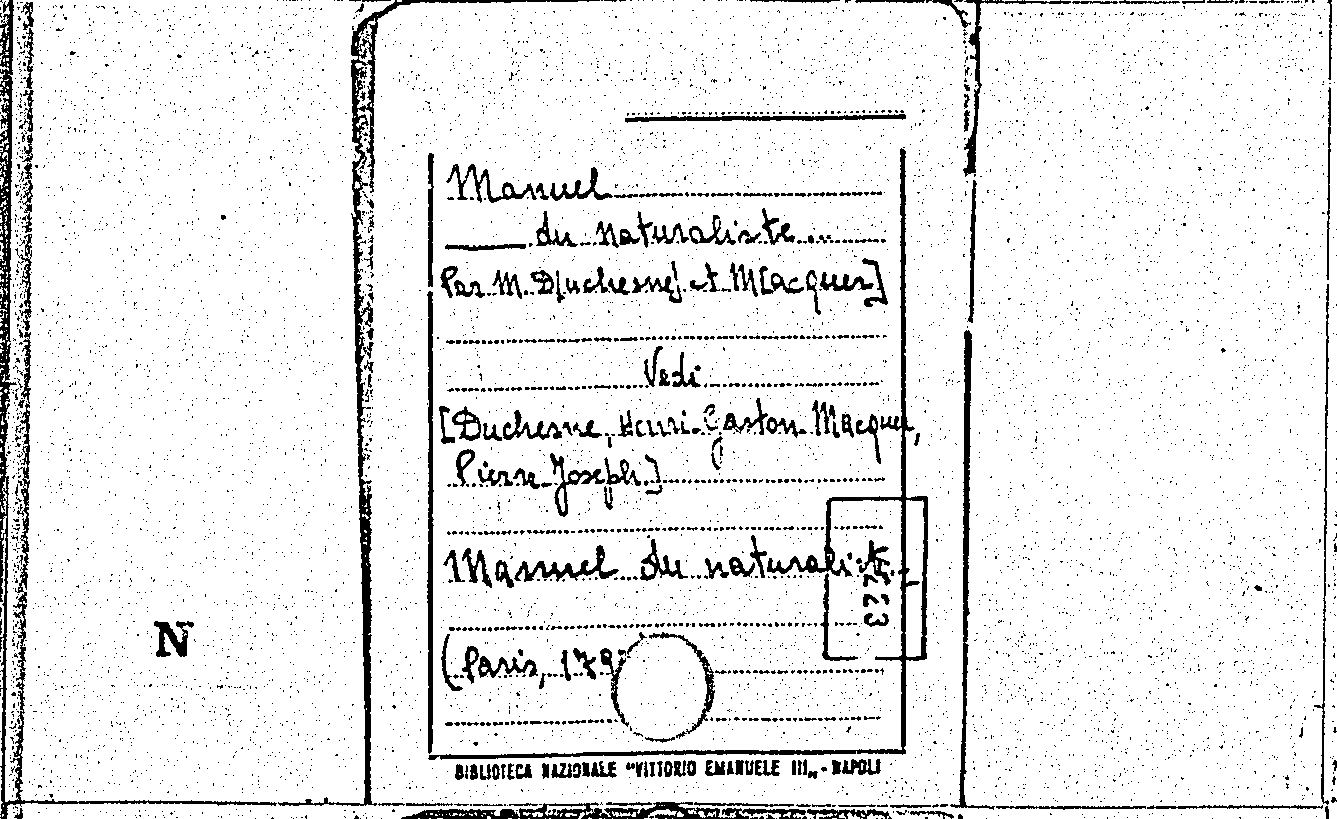 Manuel
du naturaliste...
Par M. D[uchesne] et M[acquer]
Vedi
[Duchesne, Henri-Gaston-Macquer,
Pierre Joseph.]
Manuel du naturaliste..
N
(Paris,
BIBLIOTECA NAZIONALE "VITTORIO EMANUELE III„ - NAPOLI